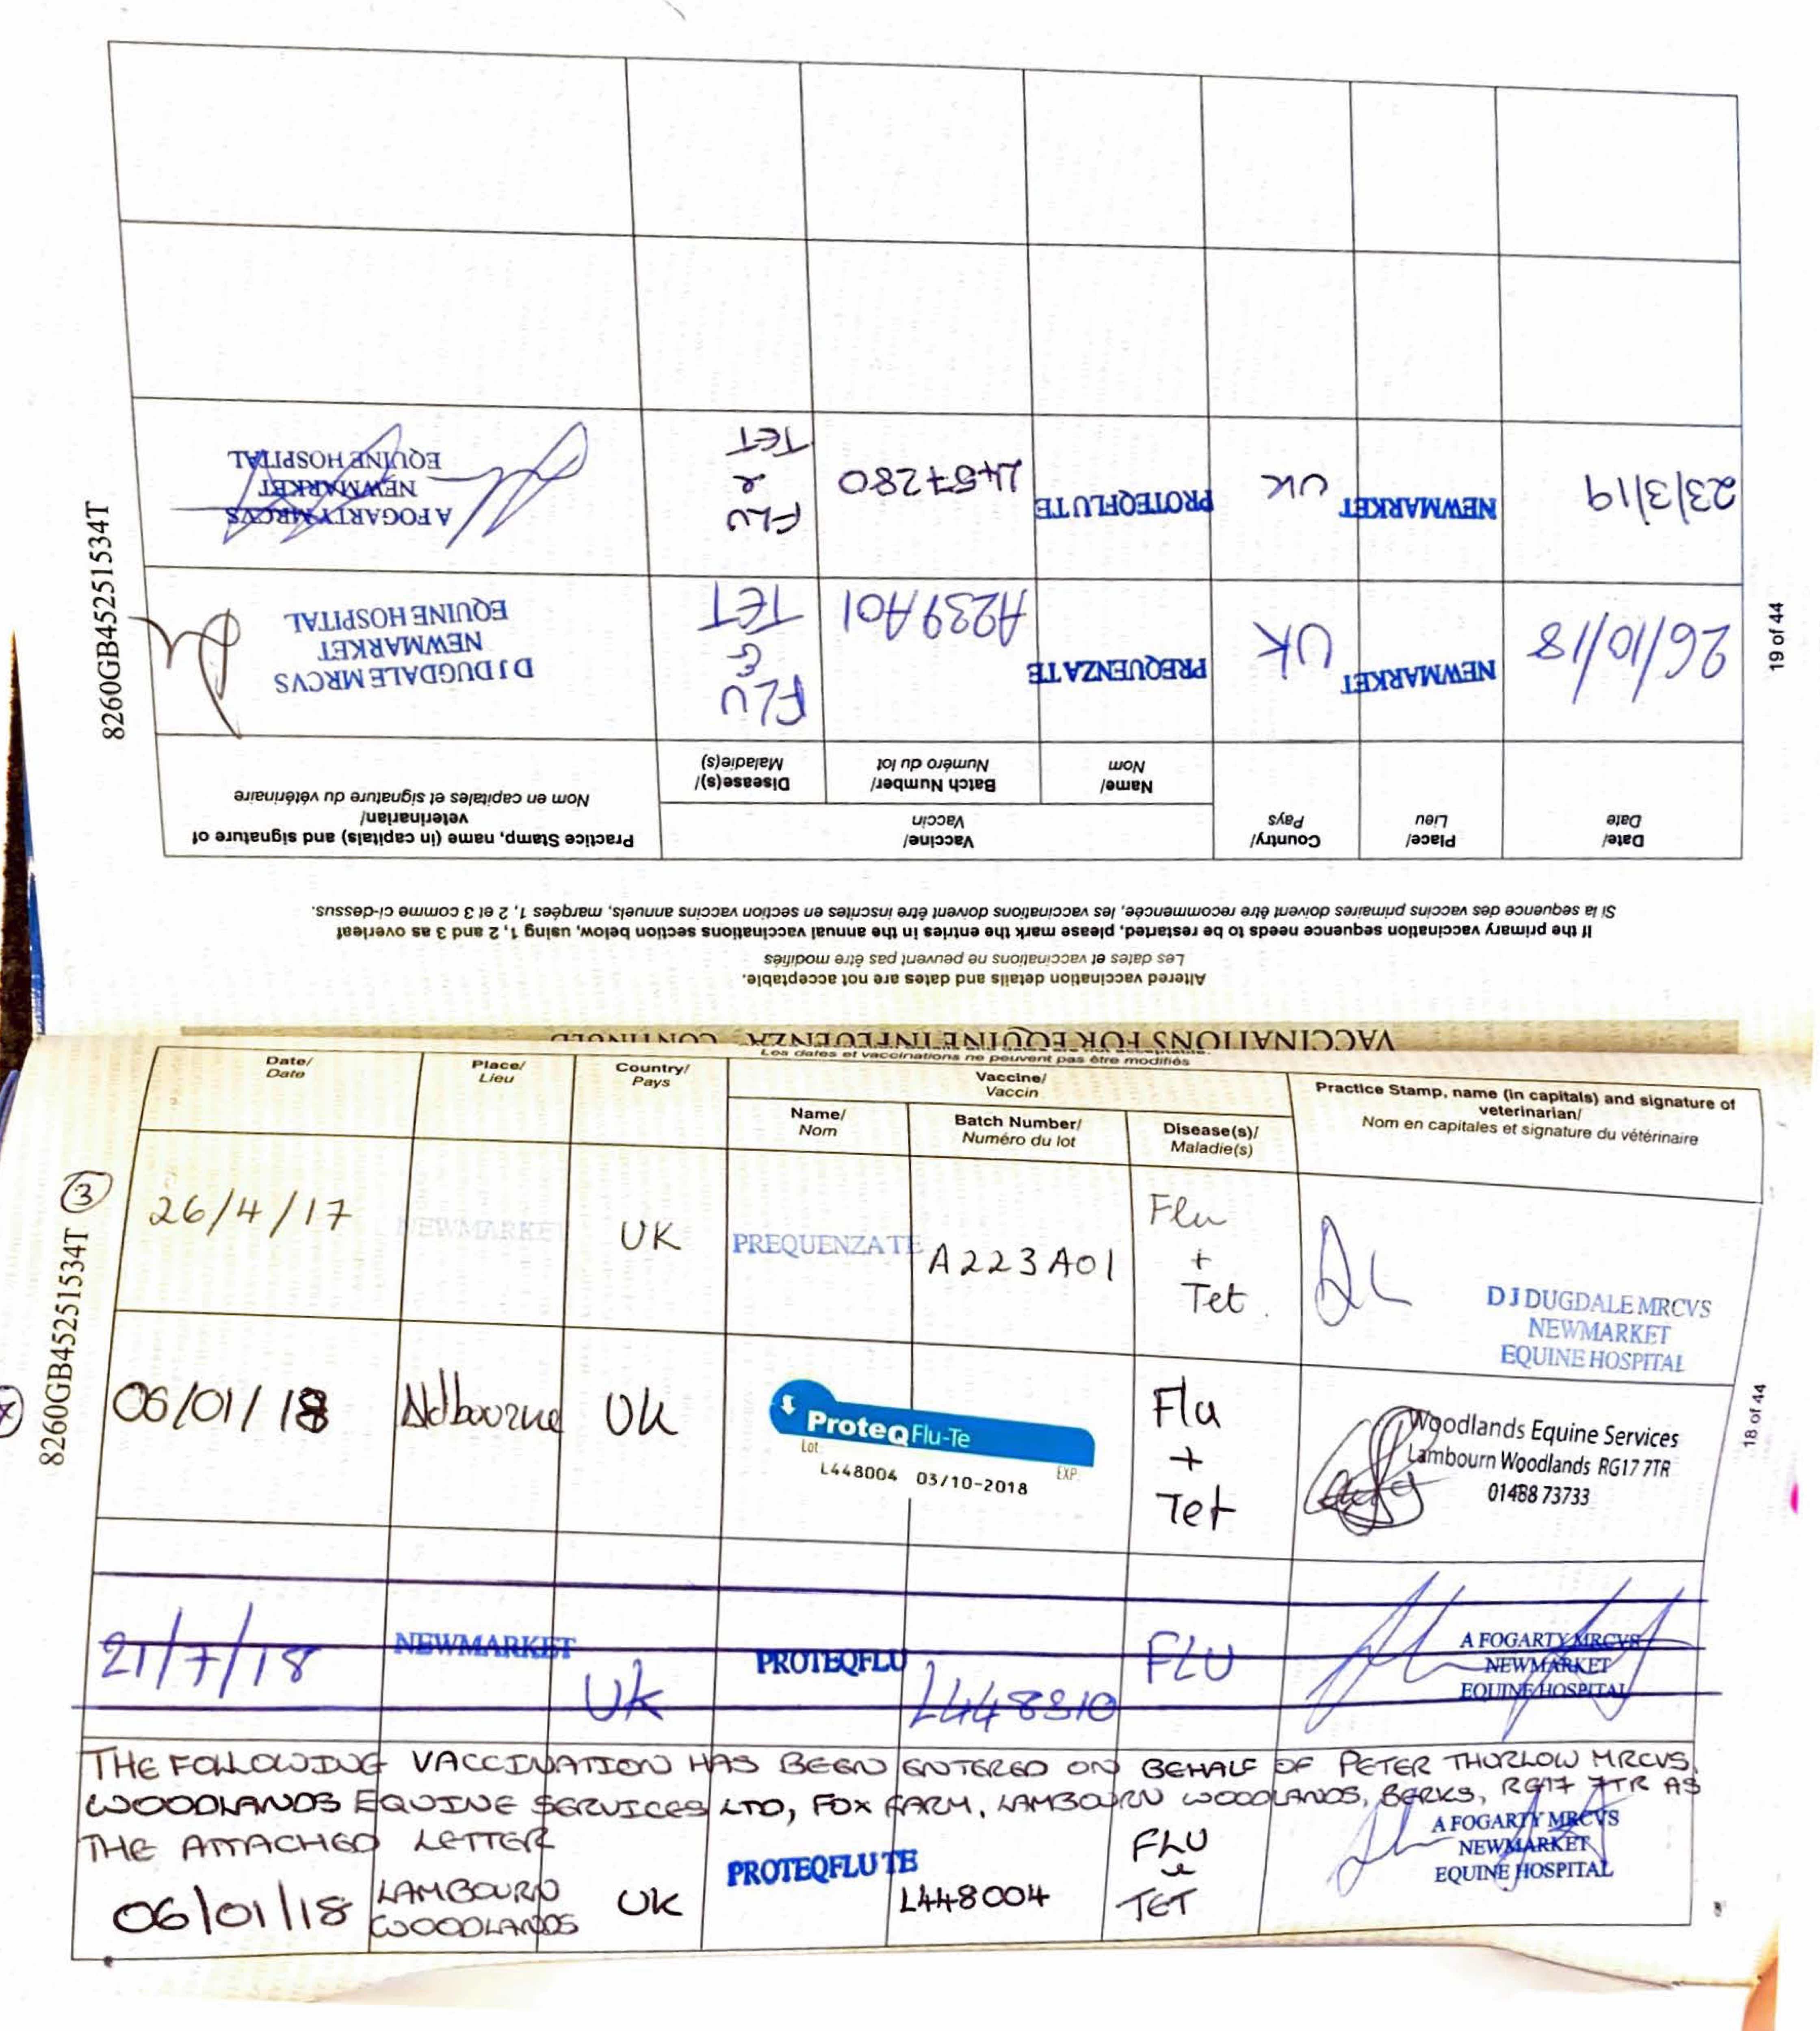 VACCINATIONS FOR EQUINE INFLUENZA - CONTINUED
Altered vaccination details and dates are not acceptable.
Les dates et vaccinations ne peuvent pas être modifiés
If the primary vaccination sequence needs to be restarted, please mark the entries in the annual vaccinations section below, using 1, 2 and 3 as overleaf
Si la sequence des vaccins primaires doivent être recommencée, les vaccinations doivent être inscrites en section vaccins annuels, marqées 1, 2 et 3 comme ci-dessus.
Date/ Place/ Country/ Vaccine/ Practice Stamp, name (in capitals) and signature of
Date Lieu Pays Vaccin veterinarian/
Name/ Batch Number/ Disease(s)/ Nom en capitales et signature du vétérinaire
Nom Numéro du lot Maladie(s)
26/10/18 NEWMARKET UK PREQUENZATE A239A01 FLU & TET
D J DUGDALE MRCVS
NEWMARKET
EQUINE HOSPITAL
23/3/19 NEWMARKET UK PROTEQFLUTE L457280 FLU & TET
A FOGARTY MRCVS
NEWMARKET
EQUINE HOSPITAL
8260GB45251534T
19 of 44
acceptable.
Les dates et vaccinations ne peuvent pas être modifiés
Date/ Place/ Country/ Vaccine/ Practice Stamp, name (in capitals) and signature of
Date Lieu Pays Vaccin veterinarian/
Name/ Batch Number/ Disease(s)/ Nom en capitales et signature du vétérinaire
Nom Numéro du lot Maladie(s)
3
26/4/17 NEWMARKET UK PREQUENZATE A223A01 Flu + Tet.
D J DUGDALE MRCVS
NEWMARKET
EQUINE HOSPITAL
06/01/18 Aldbourne UK ProteqFlu-Te Flu + Tet
Lot: EXP:
L448004 03/10-2018
Woodlands Equine Services
Lambourn Woodlands RG17 7TR
01488 73733
21/7/18 NEWMARKET UK PROTEQFLU L448310 FLU
A FOGARTY MRCVS
NEWMARKET
EQUINE HOSPITAL
THE FOLLOWING VACCINATION HAS BEEN ENTERED ON BEHALF OF PETER THURLOW MRCVS,
WOODLANDS EQUINE SERVICES LTD, FOX FARM, LAMBOURN WOODLANDS, BERKS, RG17 7TR AS
THE ATTACHED LETTER
06/01/18 LAMBOURN WOODLANDS UK PROTEQFLUTE L448004 FLU & TET
A FOGARTY MRCVS
NEWMARKET
EQUINE HOSPITAL
8260GB45251534T
18 of 44